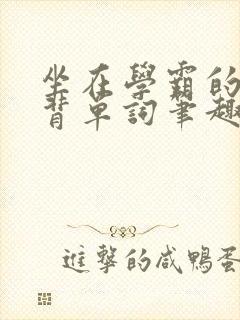 坐在學霸的
背單詞筆趣
進擊的咸鴨蛋